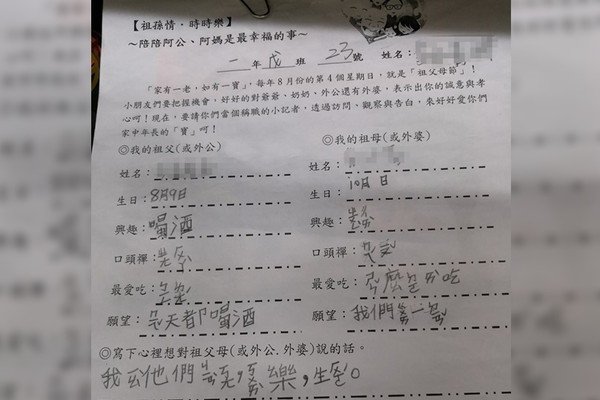 【祖孫情．時時樂】
～陪陪阿公、阿媽是最幸福的事～
一 年 戊 班 23 號 姓名：
「家有一老，如有一寶」，每年8月份的第4個星期日，就是「祖父母節」！
小朋友們要把握機會，好好的對爺爺、奶奶、外公還有外婆，表示出你的誠意與孝
心呵！現在，要請你們當個稱職的小記者，透過訪問、觀察與告白，來好好愛你們
家中年長的「寶」呵！
◎我的祖父(或外公)
姓名：
生日：8月9日
興趣：喝酒
口頭禪：
最愛吃：
願望：天都喝酒
◎我的祖母(或外婆)
姓名：
生日：10月 日
興趣：
口頭禪：
最愛吃：麼吃
願望：我們一
◎寫下心裡想對祖父母(或外公.外婆)說的話。
我他們，樂，生。